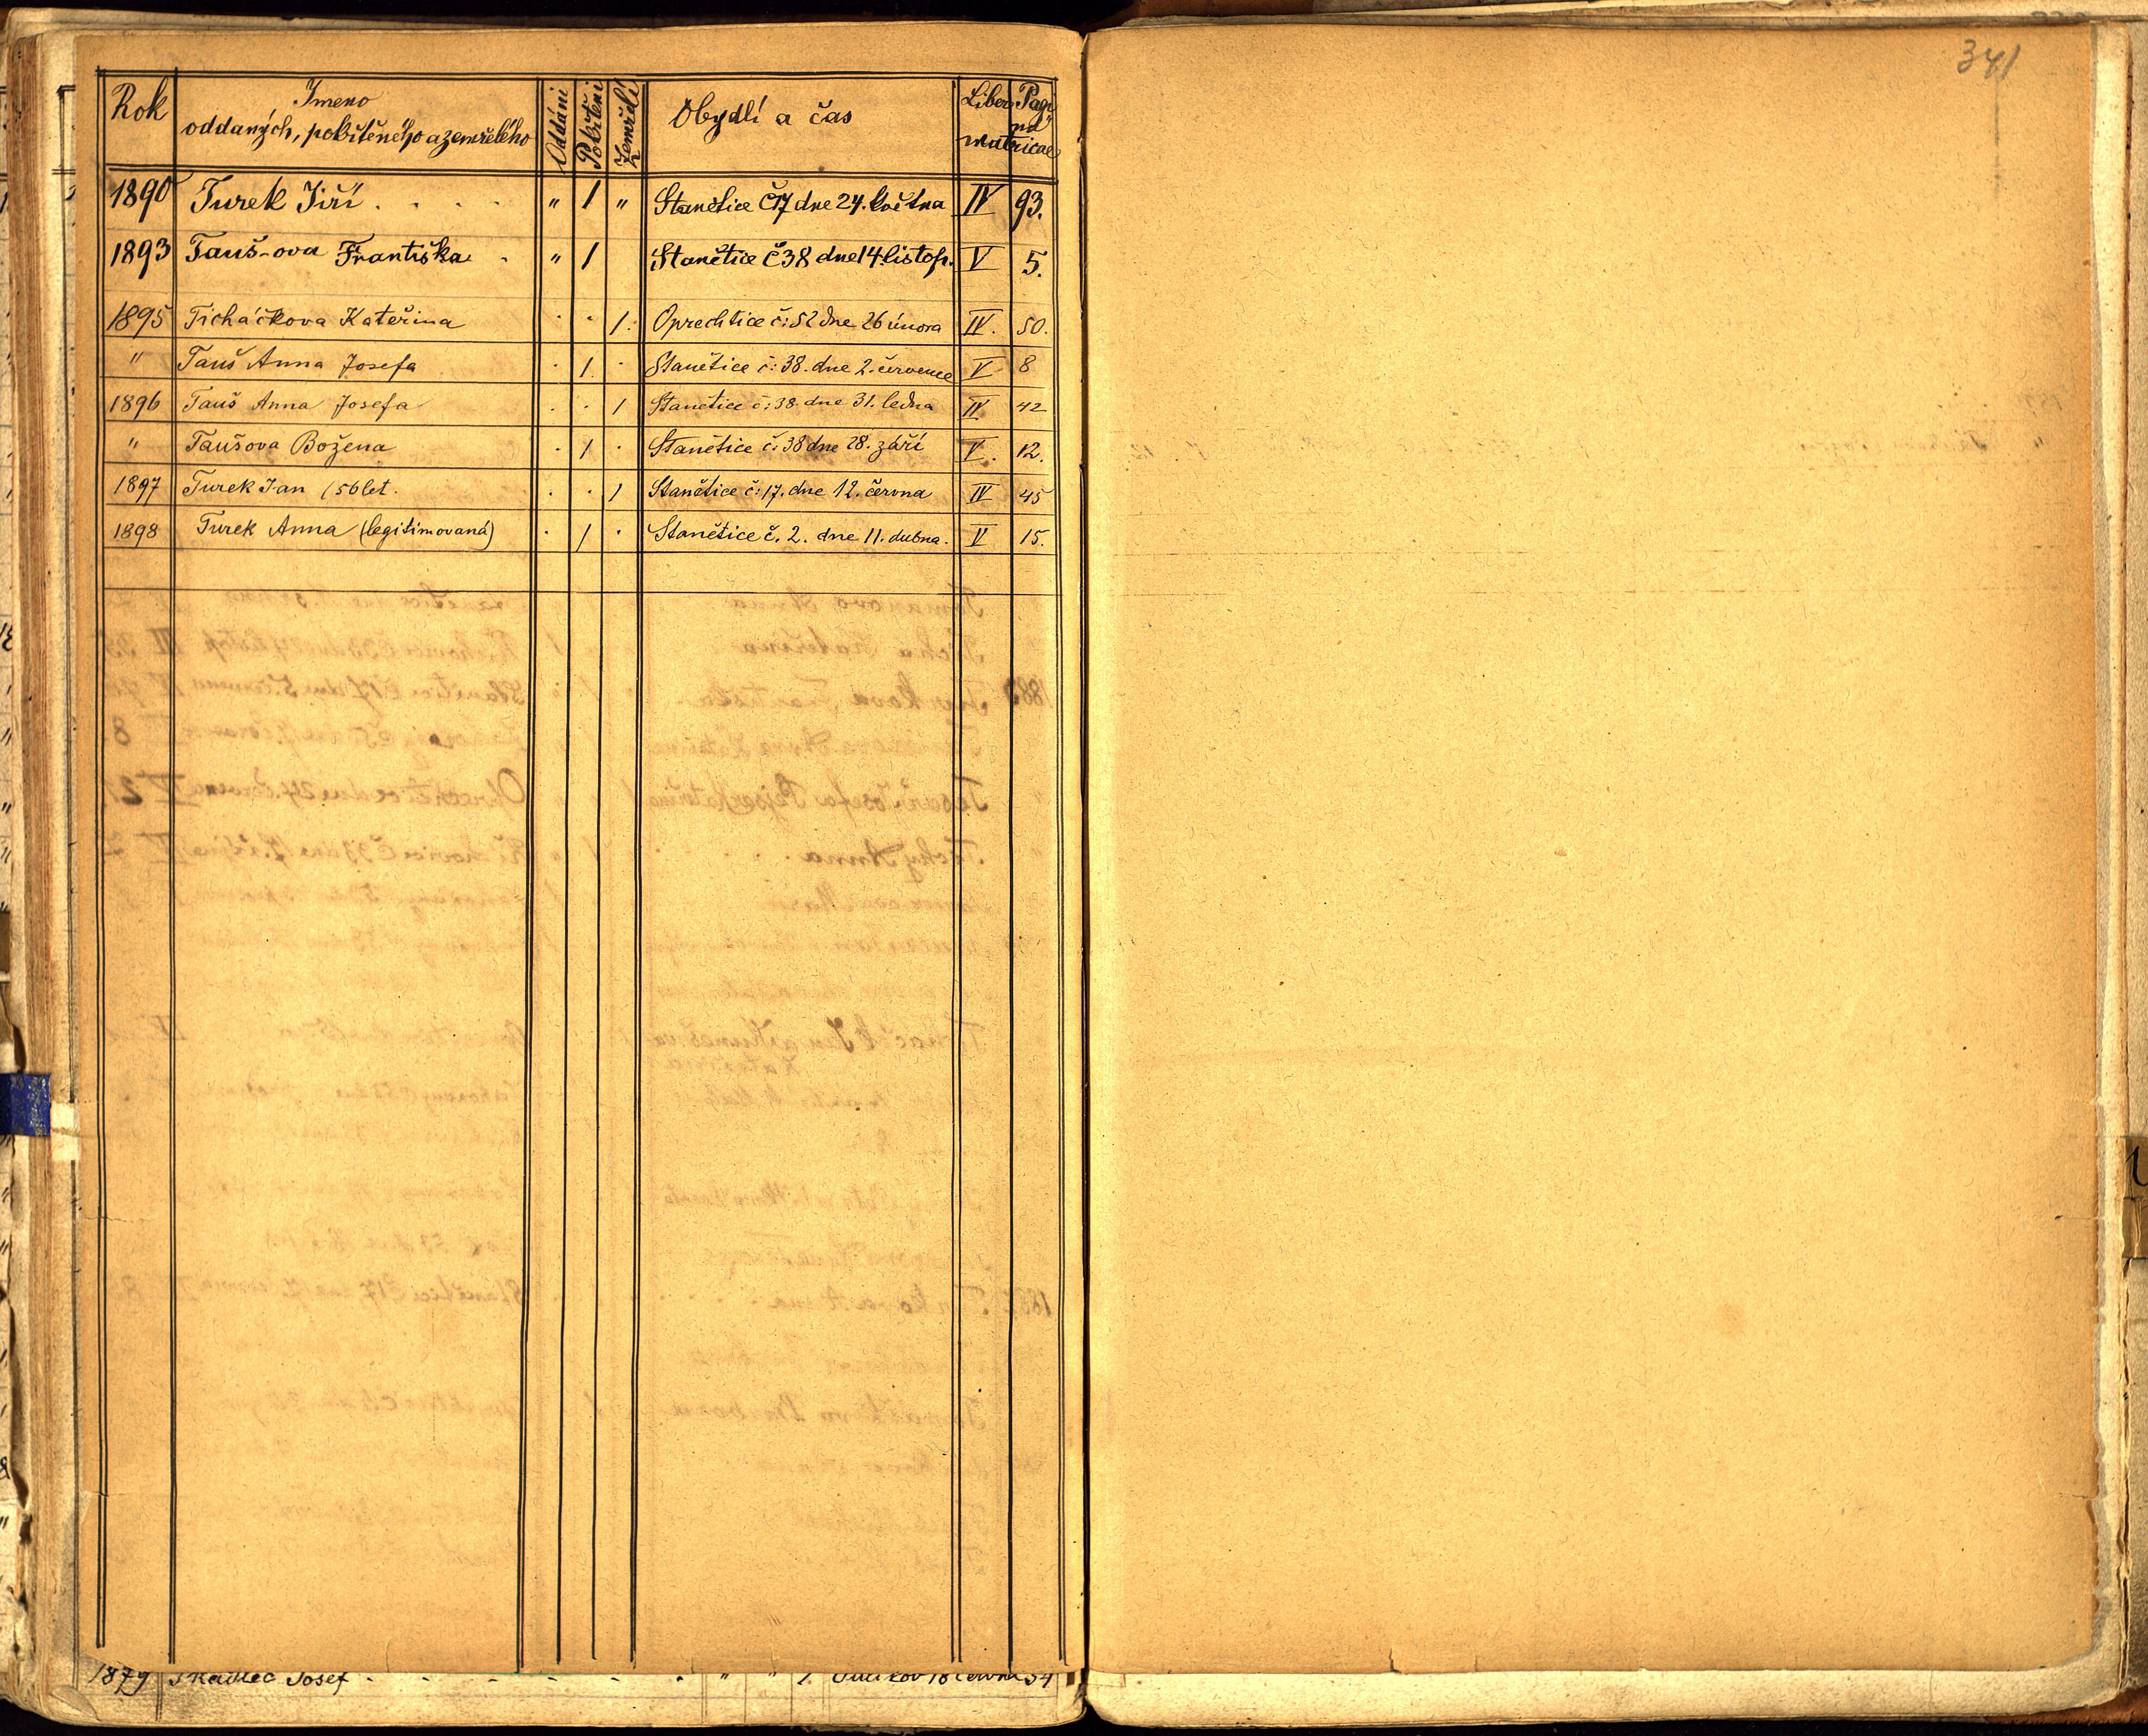 341
Rok Jmeno oddaných, pokřtěného a zemřelého Oddáni Pokřtěni Zemřeli Obydlí a čas Liber Pagina matricae
1890 Turek Jiří . . . . " 1 " Stanětice Č17 dne 24. května IV 93.
1893 Tauš-ova Františka . " 1 Stanětice Č38 dne 14 listop. V 5.
1895 Ticháčkova Kateřina . . 1. Oprechtice č: 52 dne 26 února IV. 50.
" Tauš Anna Josefa . 1. . Stanětice č: 38. dne 2. července V 8
1896 Tauš Anna Josefa . . 1 Stanětice č: 38. dne 31. ledna IV 42
" Taušova Božena . 1 . Stanětice č: 38 dne 28. září V. 12.
1897 Turek Jan (56 let. . . 1 Stanětice č: 17. dne 12. června IV 45
1898 Turek Anna (legitimovaná) . 1 . Stanětice č. 2. dne 11. dubna. V 15.
1879 Josef